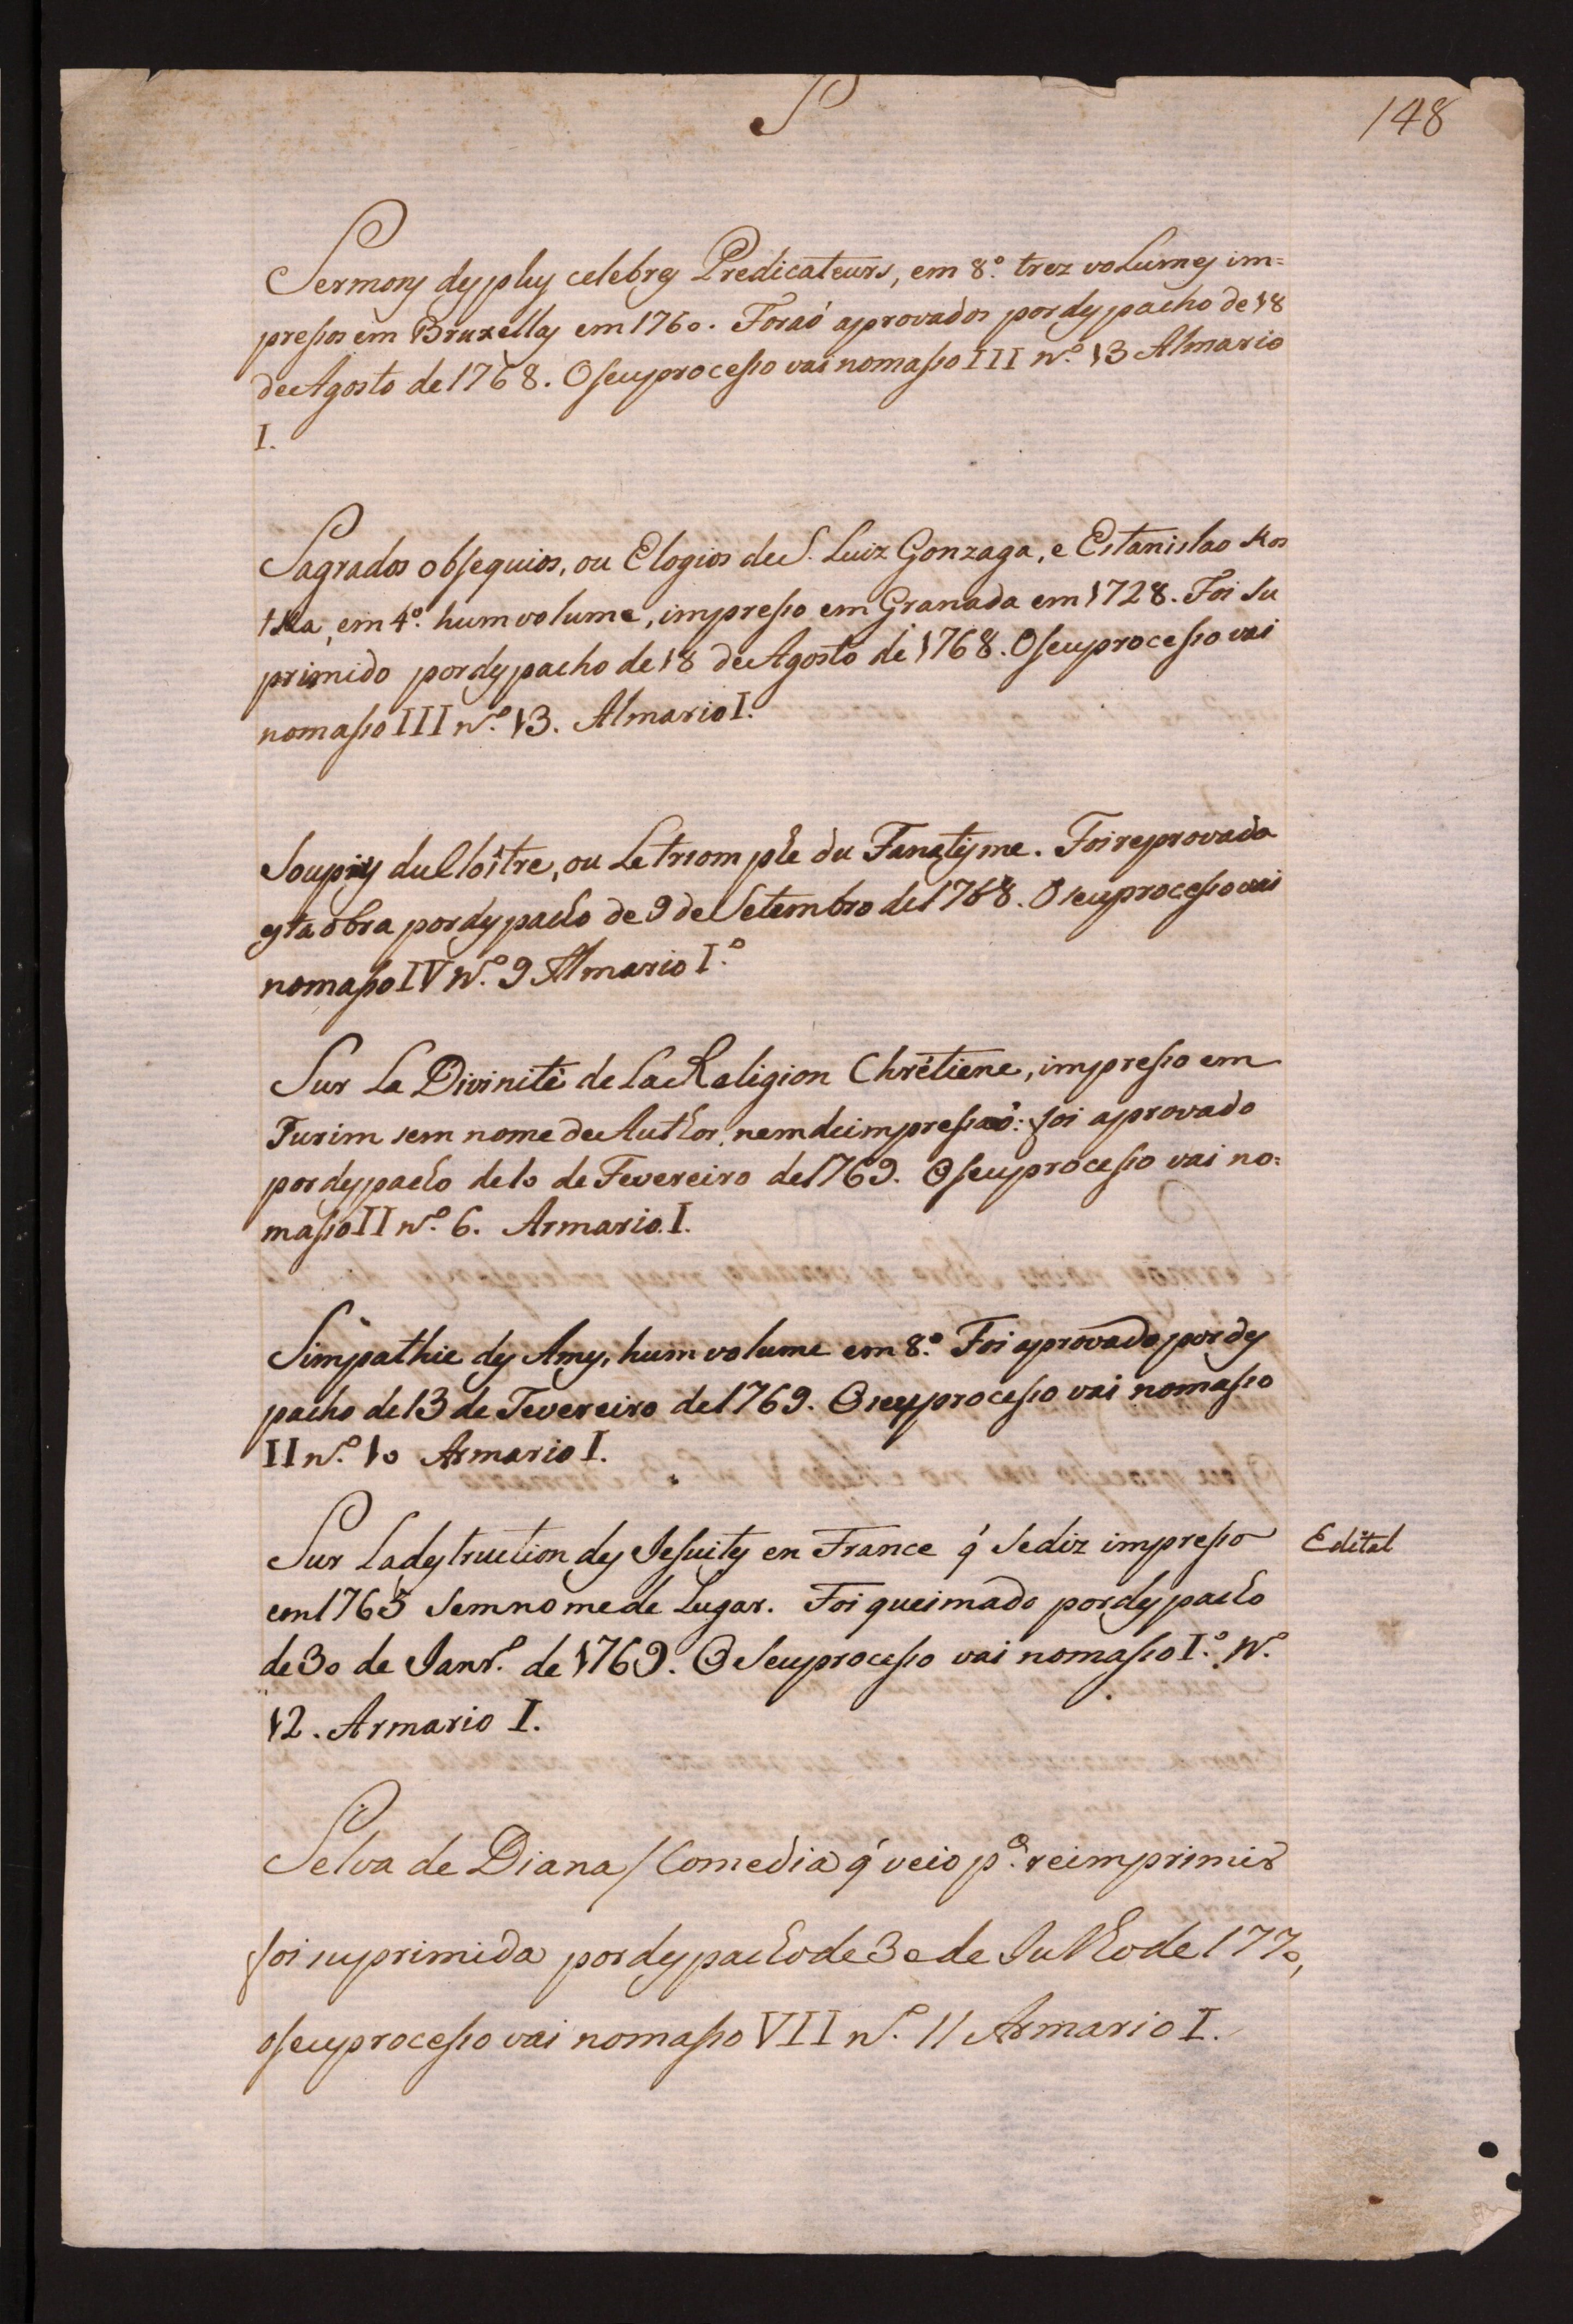 S
148
Sermons des plus celebres Predicateurs, em 8.º trez volumes im=
pressos em Bruxellas em 1760. Foraõ aprovados por despacho de 18
de Agosto de 1768. O seu processo vai no masso III N.º 13 Almario
I.
Sagrados obsequios, ou Elogios de S. Luiz Gonzaga, e Estanislao Kos
tka, em 4.º hum volume, impresso em Granada em 1728. Foi su
primido por despacho de 18 de Agosto de 1768. O seu processo vai
no masso III N.º 13. Almario I.
Soupirs du Cloître, ou Le triomphe du Fanatisme. Foi reprovada
esta obra por despacho de 9 de Setembro de 1768. O seu processo vai
no masso IV N.º 9 Almario I.º
Sur La Divinité de La Religion Chrétiene, impresso em
Turim sem nome de Author, nem de impressaõ: foi aprovado
por despacho de 10 de Fevereiro de 1769. O seu processo vai no=
masso II N.º 6. Armario I.
Simpathie des Ames, hum volume em 8.º Foi aprovado por des
pacho de 13 de Fevereiro de 1769. O seu processo vai no masso
II N.º 10 Armario I.
Sur La destruction des Jesuites en France q' se diz impresso
em 1765 sem nome de Lugar. Foi queimado por despacho
de 30 de Janr.º de 1769. O seu processo vai no masso I.º N.º
12. Armario I.
Edital
Selva de Diana / Comedia q' veio p.ª reimprimir
foi suprimida por despacho de 30 de Julho de 1770,
o seu processo vai no masso VII N.º 11 Armario I.